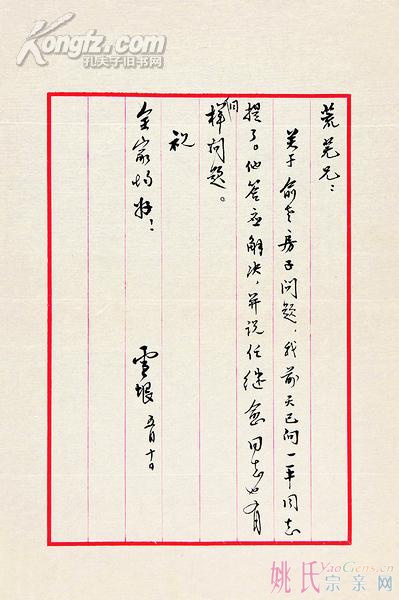 Kongfz.com
孔夫子旧书网
荒芜兄：
关于俞老房子问题，我前天已向一平同志
提了。他答应解决，并说任继愈同志也有
同样问题。
祝
全家均好！
雪垠 五月十日
姚氏 YaoGens.cn
宗亲网